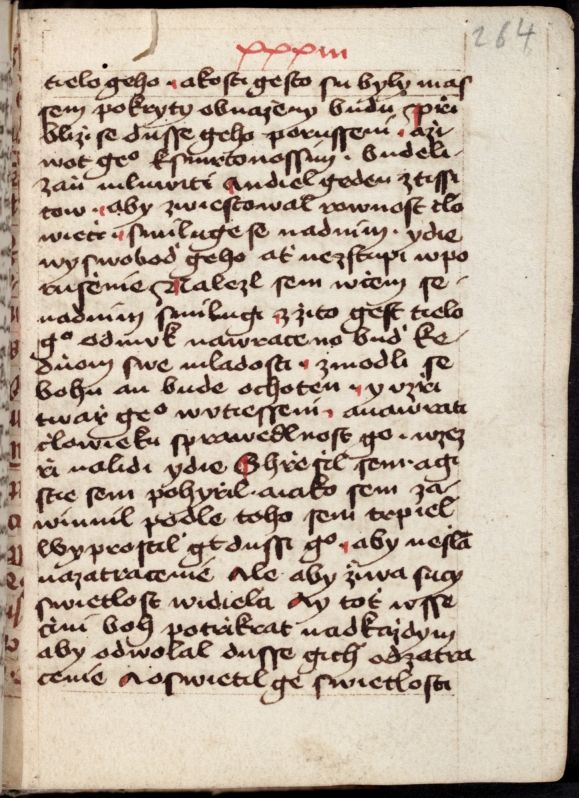 264
xxxiii
tielo geho · a kosti gesto su byly mas
sem pokryty obnazeny budu · Przi
blizi se dusse geho porusseni · a zi
wot geo k smrtonossim · Budeli
zan mluwiti Andiel geden z tissi
tow · aby zwiestowal rownost clo
wieci · smiluge se nadnim · y die
wyswobod geho at nezstupi w po
russenie Nalezl sem w czem se
nadnim smilugi · zzito gest tielo
go od muk nawraceno bud ke
dnom swe mladosti · zmodli se
bohu an bude ochoten · y uzrzi
twarz geo w utiesseni · a nawrati
clowieku sprawedlnost go · wzez
rzi na lidi y die Shrzesil sem · a gi
stie sem pohyrzil · a iako sem za
winnil podle toho sem trpiel
Wyprostil gt dussi go · aby nessla
na zatracenie Ale aby ziwa sucy
swietlost widiela Ay tot wsse
czini boh potrzikrat nad kazdym
aby odwolal dusse gich od zatra
cenie A oswietil ge swietlosti